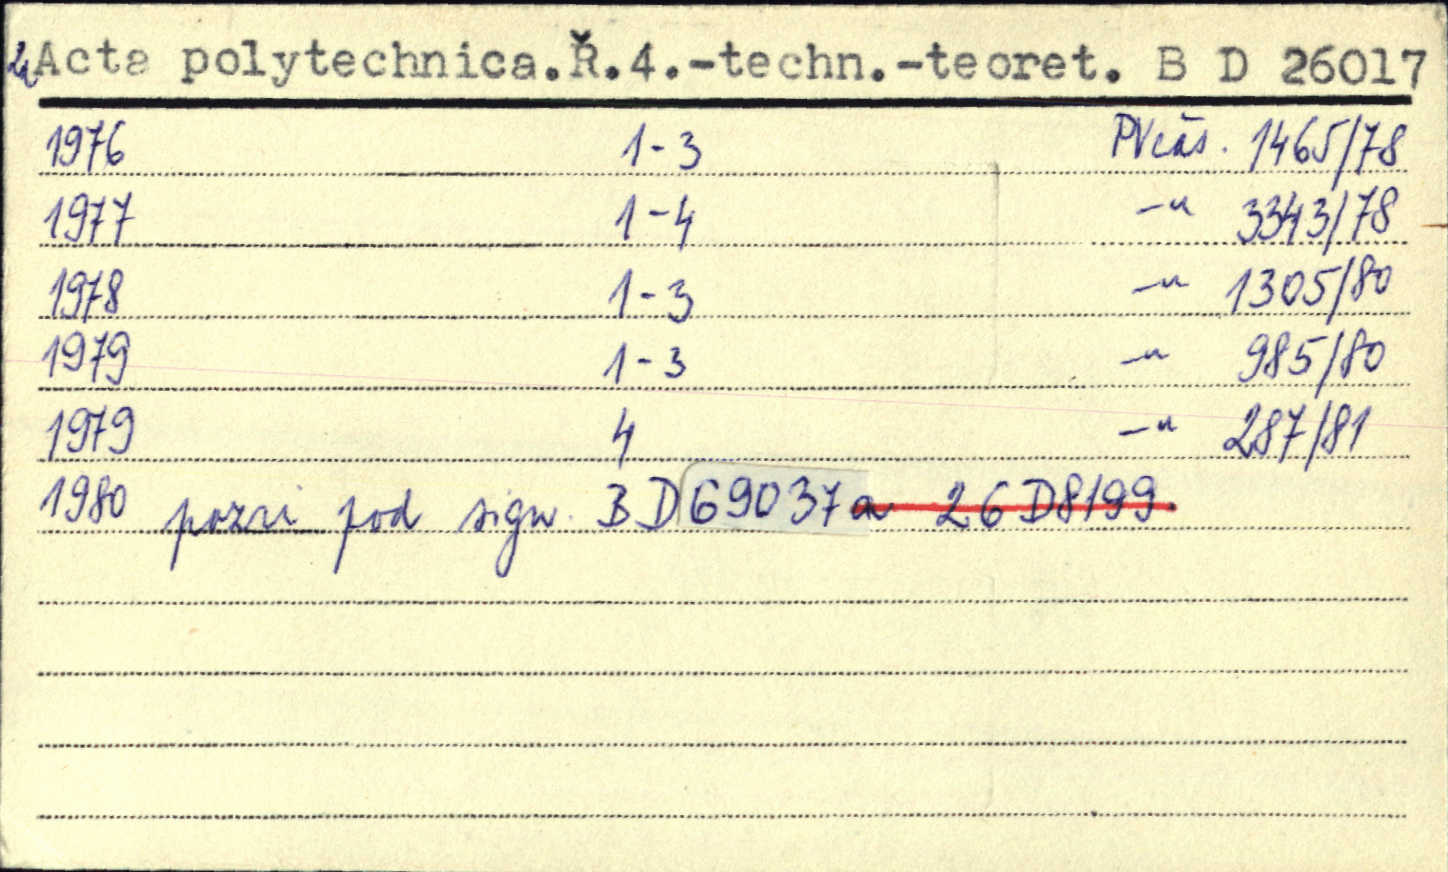 Acta polytechnica.Ř.4.-techn.-teoret. B D 26017
1976 1-3 PVčas. 1465/78
1977 1-4 -"- 3343/78
1978 1-3 -"- 1305/80
1979 1-3 -"- 985/80
1979 4 -"- 287/81
1980 pozri pod sign. BD69037 a 26D8199.